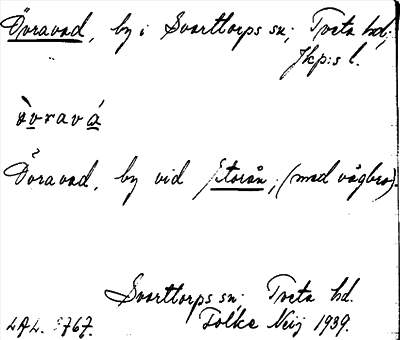 Övravad, by i Svarttorps sn; Tveta hd;
Jkp:s l.
òvravá
Övravad, by vid Storån, (med vägbro).
Svarttorps sn; Tveta hd.
LAL. 3767. Folke Neij 1939.